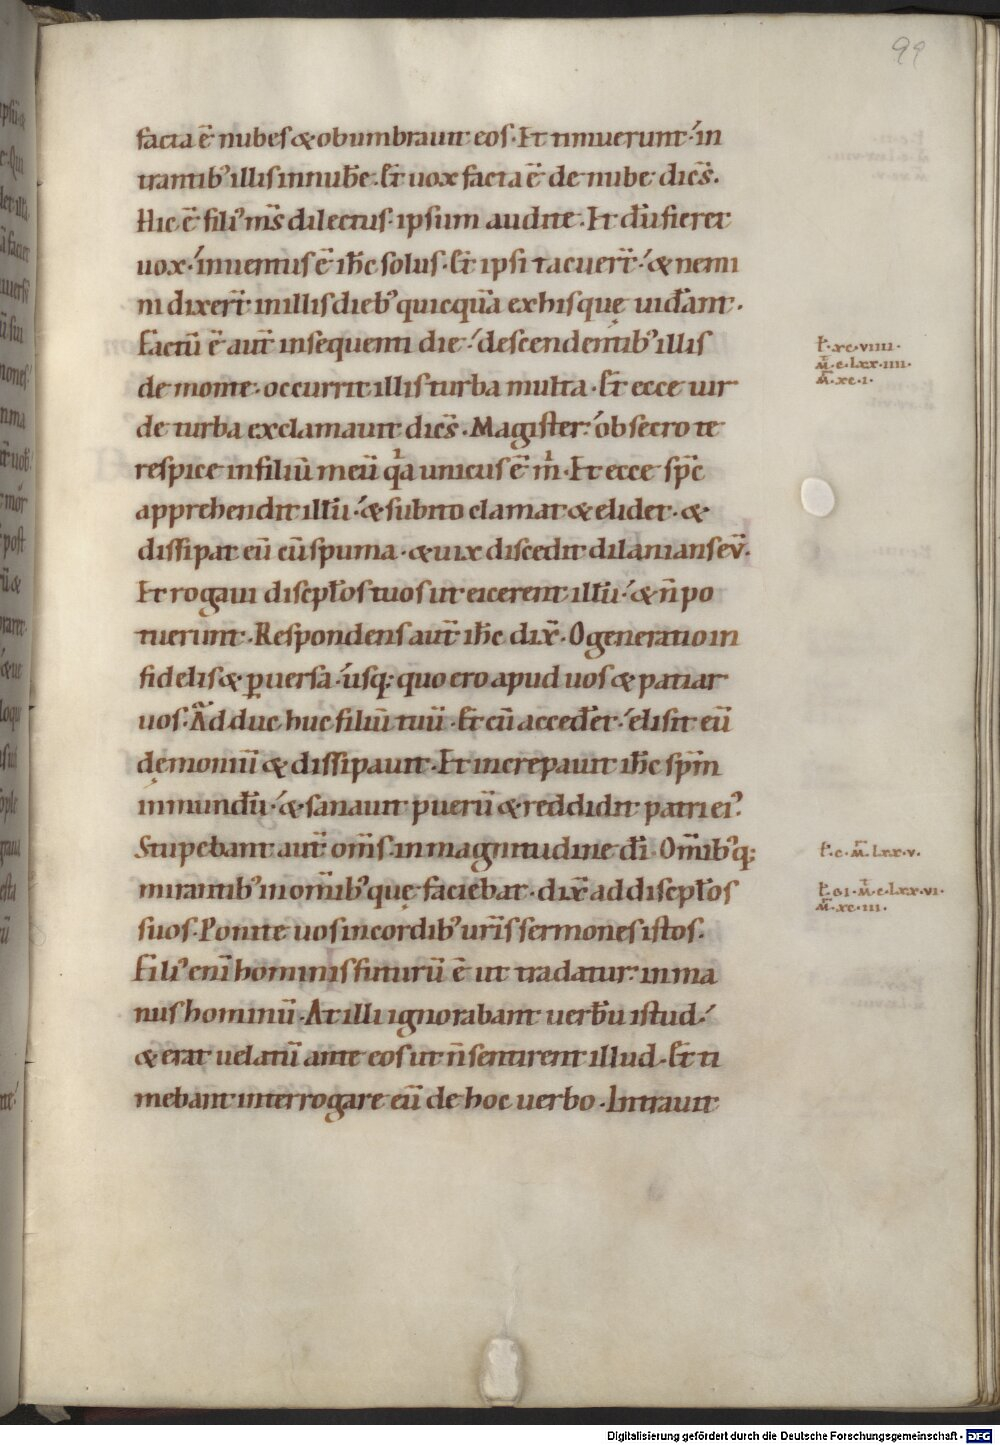 99
facta ē nubes & obumbrauit eos. Et timuerunt in
trantib; illis in nubē. Et uox facta ē de nube dicēs.
Hic ē fili' m̄s dilectus. ipsum audite. Et dū fieret
uox. inuentus ē ih̄c solus. Et ipsi tacuer̄t. & nemi
ni dixer̄t in illis dieb; quicquā ex his quę uiderant.
Factū ē aut̄ in sequenti die. descendentib; illis
de monte. occurrit illis turba multa. Et ecce uir
de turba exclamauit dicēs. Magister. obsecro te
respice in filiū meū qia unicus ē m. Et ecce sp̄c
apprehendit illū. & subito clamat & elidet. &
dissipat eū cū spuma. & uix discedit dilanians eū.
Et rogaui discipl̄os tuos ut eicerent illū. & n̄ po
tuerunt. Respondens aut̄ ih̄c dix̄. O generatio in
fidelis & puersa. usq; quo ero apud uos & patiar
uos. Adduc huc filiū tuū. Et cū accedēt. elisit eū
dęmoniū & dissipauit. Et increpauit ih̄c sp̄m
inmundū. & sanauit puerū & reddidit patri ei'.
Stupebant aut̄ om̄s in magnitudine dī. Om̄ib;q;
mirantib; in om̄ib; quę faciebat. dix̄ ad discipl̄os
suos. Ponite uos in cordib; ur̄is sermones istos.
Fili' enī hominis futurū ē ut tradatur in ma
nus hominū. At illi ignorabant uerbū istud.
& erat uelatū ante eos ut n̄ sentirent illud. Et ti
mebant interrogare eū de hoc uerbo. Intrauit
L. xc. viiii.
M. c. Lxx. iiii.
M. xc. i.
L. c. M. Lxx. v.
L. ci. M. c. Lxx. vi.
M. xc. iii.
Digitalisierung gefördert durch die Deutsche Forschungsgemeinschaft - DFG